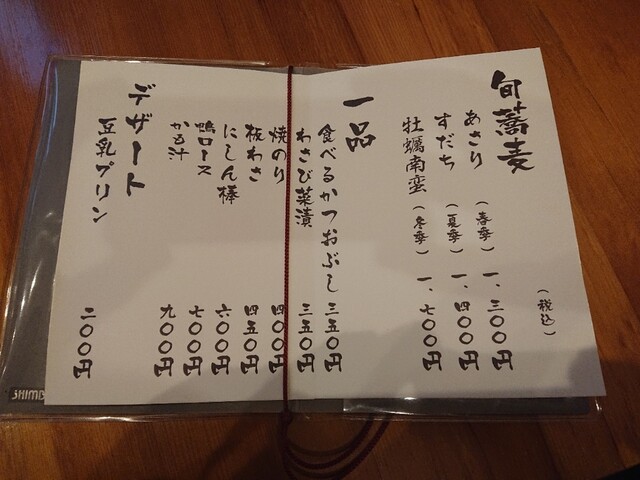 旬蕎麦
（税込）
あさり（春季）一、三００円
すだち（夏季）一、四００円
牡蠣南蛮（冬季）一、七００円
一品
食べるかつおぶし 三五０円
わさび菜漬 三五０円
焼のり 四００円
板わさ 四五０円
にしん棒 六００円
鴨ロース 七００円
かも汁 九００円
デザート
豆乳プリン 二００円